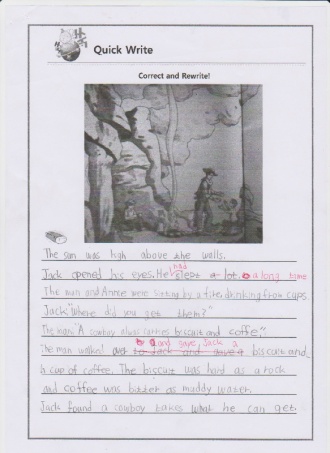 Quick Write
Correct and Rewrite!
The sun was high above the walls.
had
Jack opened his eyes. He slept a lot. a long time
The man and Annie were sitting by a fire, drinking from cups
Jack "Where did you get them?"
The man, "A cowboy always carries biscuit and coffe."
and gave Jack a
The man walked over to Jack and gave a biscuit and
a cup of coffee. The biscuit was hard as a rock
and coffee was bitter as muddy water.
Jack found a cowboy takes what he can get